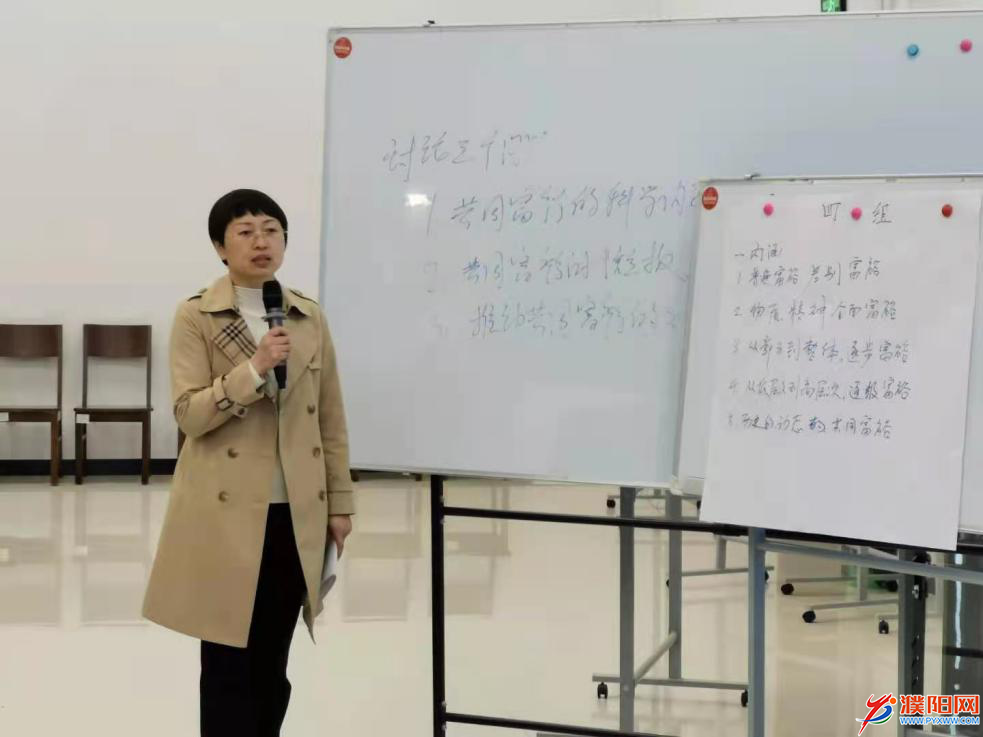 讨论三个问
1 共同富裕的科学内
2 共同富裕的短板
3. 推动共同富裕的
四组
一内涵
1.普遍富裕 差别富裕
2.物质、精神全面富裕
3.从部分到整体,逐步富裕
4.从低层次到高层次,逐级富裕
5.历史的动态的共同富裕
濮阳网
WWW.PYXWW.COM